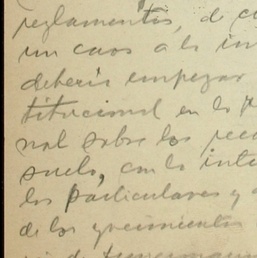 reglamentos, de c
un caos a lo in
deberá empezar
titucional en lo p
nal sobre los recu
suelo, con lo inte
los particulares y
de los yacimientos